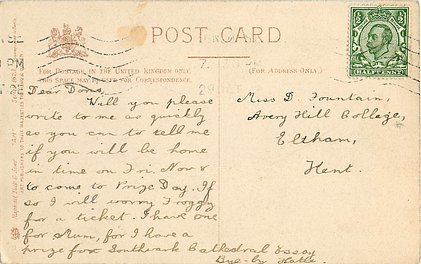 POST CARD
FOR POSTAGE IN THE UNITED KINGDOM ONLY
THIS SPACE MAY BE USED FOR CORRESPONDENCE.
(FOR ADDRESS ONLY.)
HALFPENNY
Dear Dons,
Will you please
write to me as quickly
as you can to tell me
if you will be home
in time on Fri. Nov 8
to come to Prize Day. If
so I will worry Froggy
for a ticket. I have one
for Mum, for I have a
prize for Southwark Cathedral Essay
Bye-by
Miss D. Fountain,
Avery Hill College,
Eltham,
Kent.